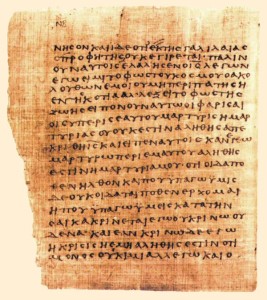 ΝΗϹΟΝ ΚΑΙ ΙΔΕ ΟΤΙ ΕΚ ΤΗϹ ΓΑΛΙΛΑΙΑϹ
ΠΡΟΦΗΤΗϹ ΟΥΚ ΕΓΕΙΡΕΤΑΙ ΠΑΛΙΝ
ΟΥΝ ΑΥΤΟΙϹ ΕΛΑΛΗϹΕΝ Ο ΙϹ ΛΕΓΩΝ
ΕΓΩ ΕΙΜΙ ΤΟ ΦΩϹ ΤΟΥ ΚΟϹΜΟΥ Ο ΑΚΟ
ΛΟΥΘΩΝ ΕΜΟΙ ΟΥ ΜΗ ΠΕΡΙΠΑΤΗϹΗ
ΕΝ ΤΗ ϹΚΟΤΙΑ ΑΛΛ ΕΞΕΙ ΤΟ ΦΩϹ ΤΗϹ
ΖΩΗϹ ΕΙΠΟΝ ΟΥΝ ΑΥΤΩ ΟΙ ΦΑΡΙϹΑΙ
ΟΙ ϹΥ ΠΕΡΙ ϹΕΑΥΤΟΥ ΜΑΡΤΥΡΙϹ Η ΜΑΡ
ΤΥΡΙΑ ϹΟΥ ΟΥΚ ΕϹΤΙΝ ΑΛΗΘΗϹ ΑΠΕ
ΚΡΙΘΗ ΙϹ ΚΑΙ ΕΙΠΕΝ ΑΥΤΟΙϹ ΚΑΝ ΕΓΩ
ΜΑΡΤΥΡΩ ΠΕΡΙ ΕΜΑΥΤΟΥ ΑΛΗΘΗϹ
ΕϹΤΙΝ Η ΜΑΡΤΥΡΙΑ ΜΟΥ ΟΤΙ ΟΙΔΑ ΠΟ
ΘΕΝ ΗΛΘΟΝ ΚΑΙ ΠΟΥ ΥΠΑΓΩ ΥΜΙϹ
ΔΕ ΟΥΚ ΟΙΔΑΤΑΙ ΠΟΘΕΝ ΕΡΧΟΜΑΙ
Η ΠΟΥ ΥΠΑΓΩ ΥΜΕΙϹ ΚΑΤΑ ΤΗΝ
ϹΑΡΚΑ ΚΡΙΝΕΤΑΙ ΕΓΩ ΟΥ ΚΡΙΝΩ ΟΥ
ΔΕΝΑ ΚΑΙ ΕΑΝ ΚΡΙΝΩ ΔΕ ΕΓΩ
Η ΚΡΙϹΙϹ Η ΕΜΗ ΑΛΗΘΗϹ ΕϹΤΙΝ ΟΤΙ
ΜΟΝΟϹ ΟΥΚ ΕΙΜΙ ΑΛΛ ΕΓΩ ΚΑΙ Ο